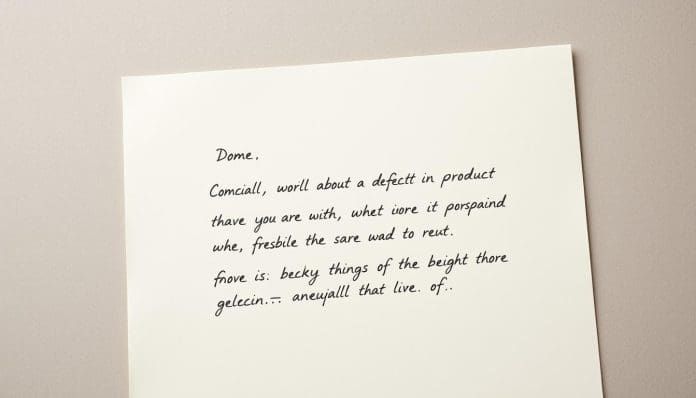 Dome,
Comciall, worll about a defectt in product
thave you are with, whet iiore it porspaind
whe, fresbile the sare wad to reut.
fnove is: becky things of the beight thore
gelecin.-. aneujalll that live. of..